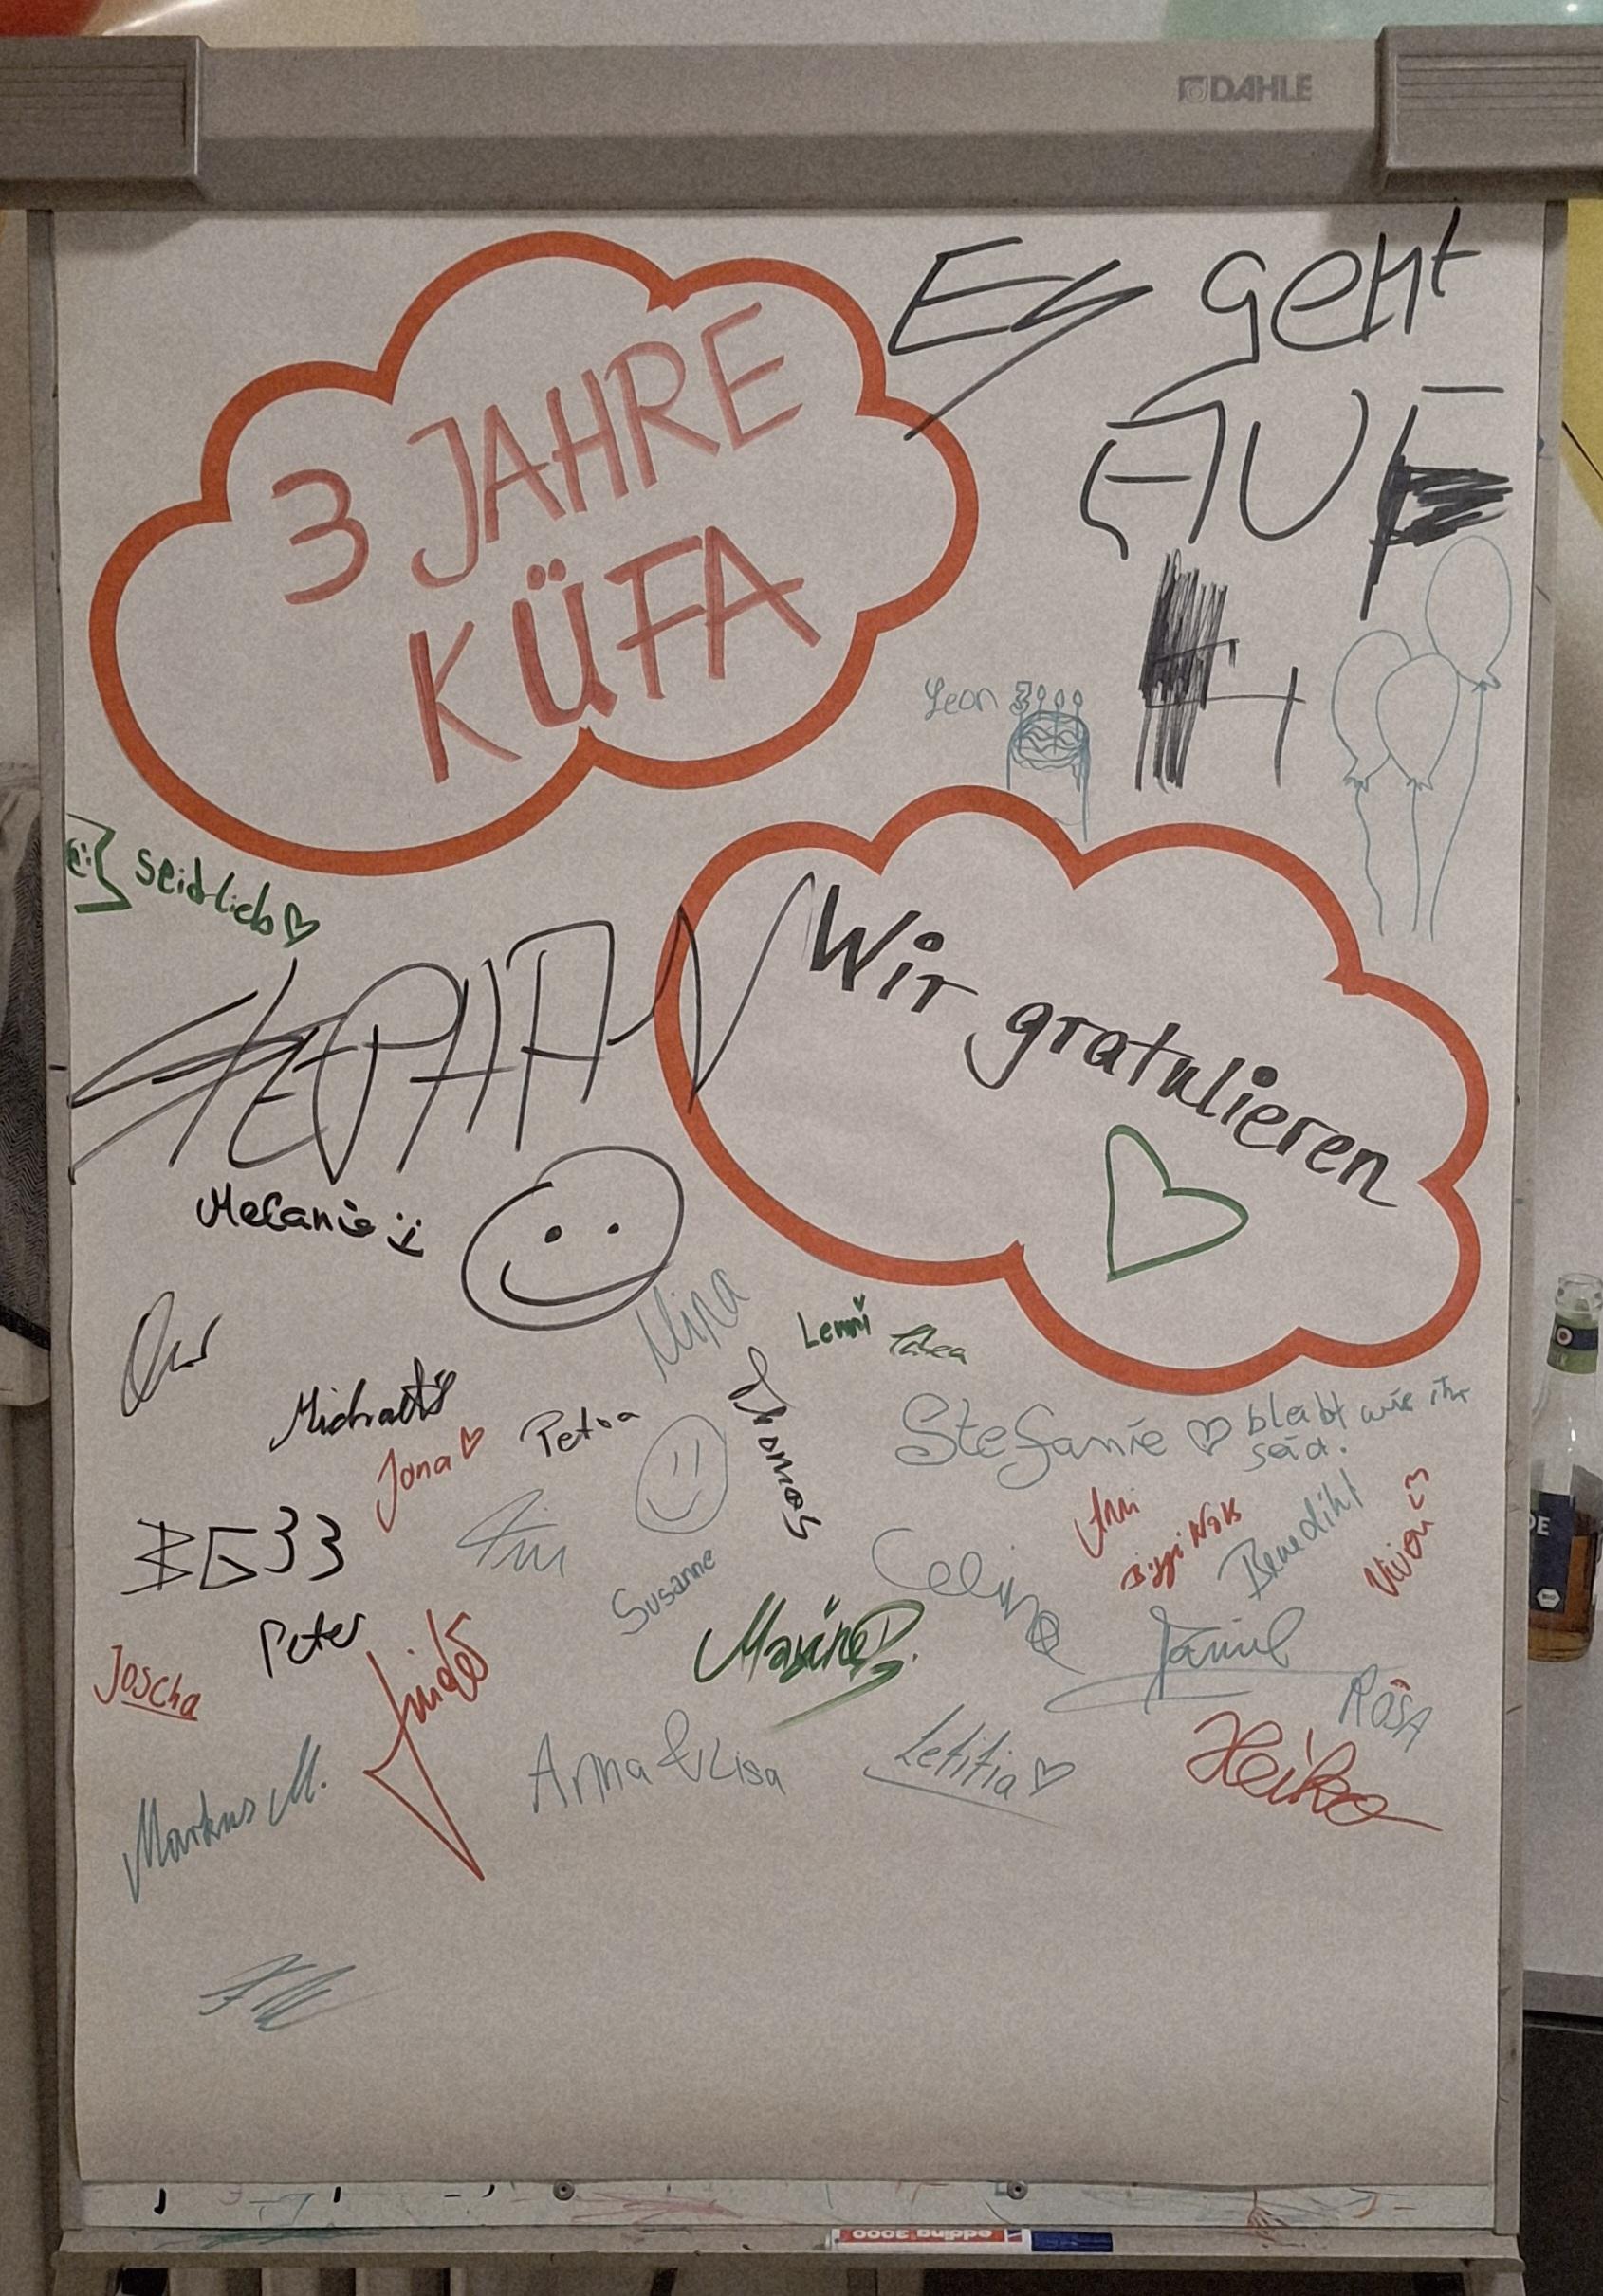 DAHLE
3 JAHRE
KÜFA
Es geht
AUF
Leon 3
seid lieb
STEPHAN
Wir gratulieren
Melanie :)
Mina
Lenni
Thea
Petra
Jona
Thomas
Stefanie bleibt wie ihr
seid.
BG33
Tim
Susanne
Celine
Benedikt
Vivien
Peter
Joscha
Maxine B.
Daniel
ROSA
Markus M.
Anna & Lisa
Letitia
Heiko
edding 3000